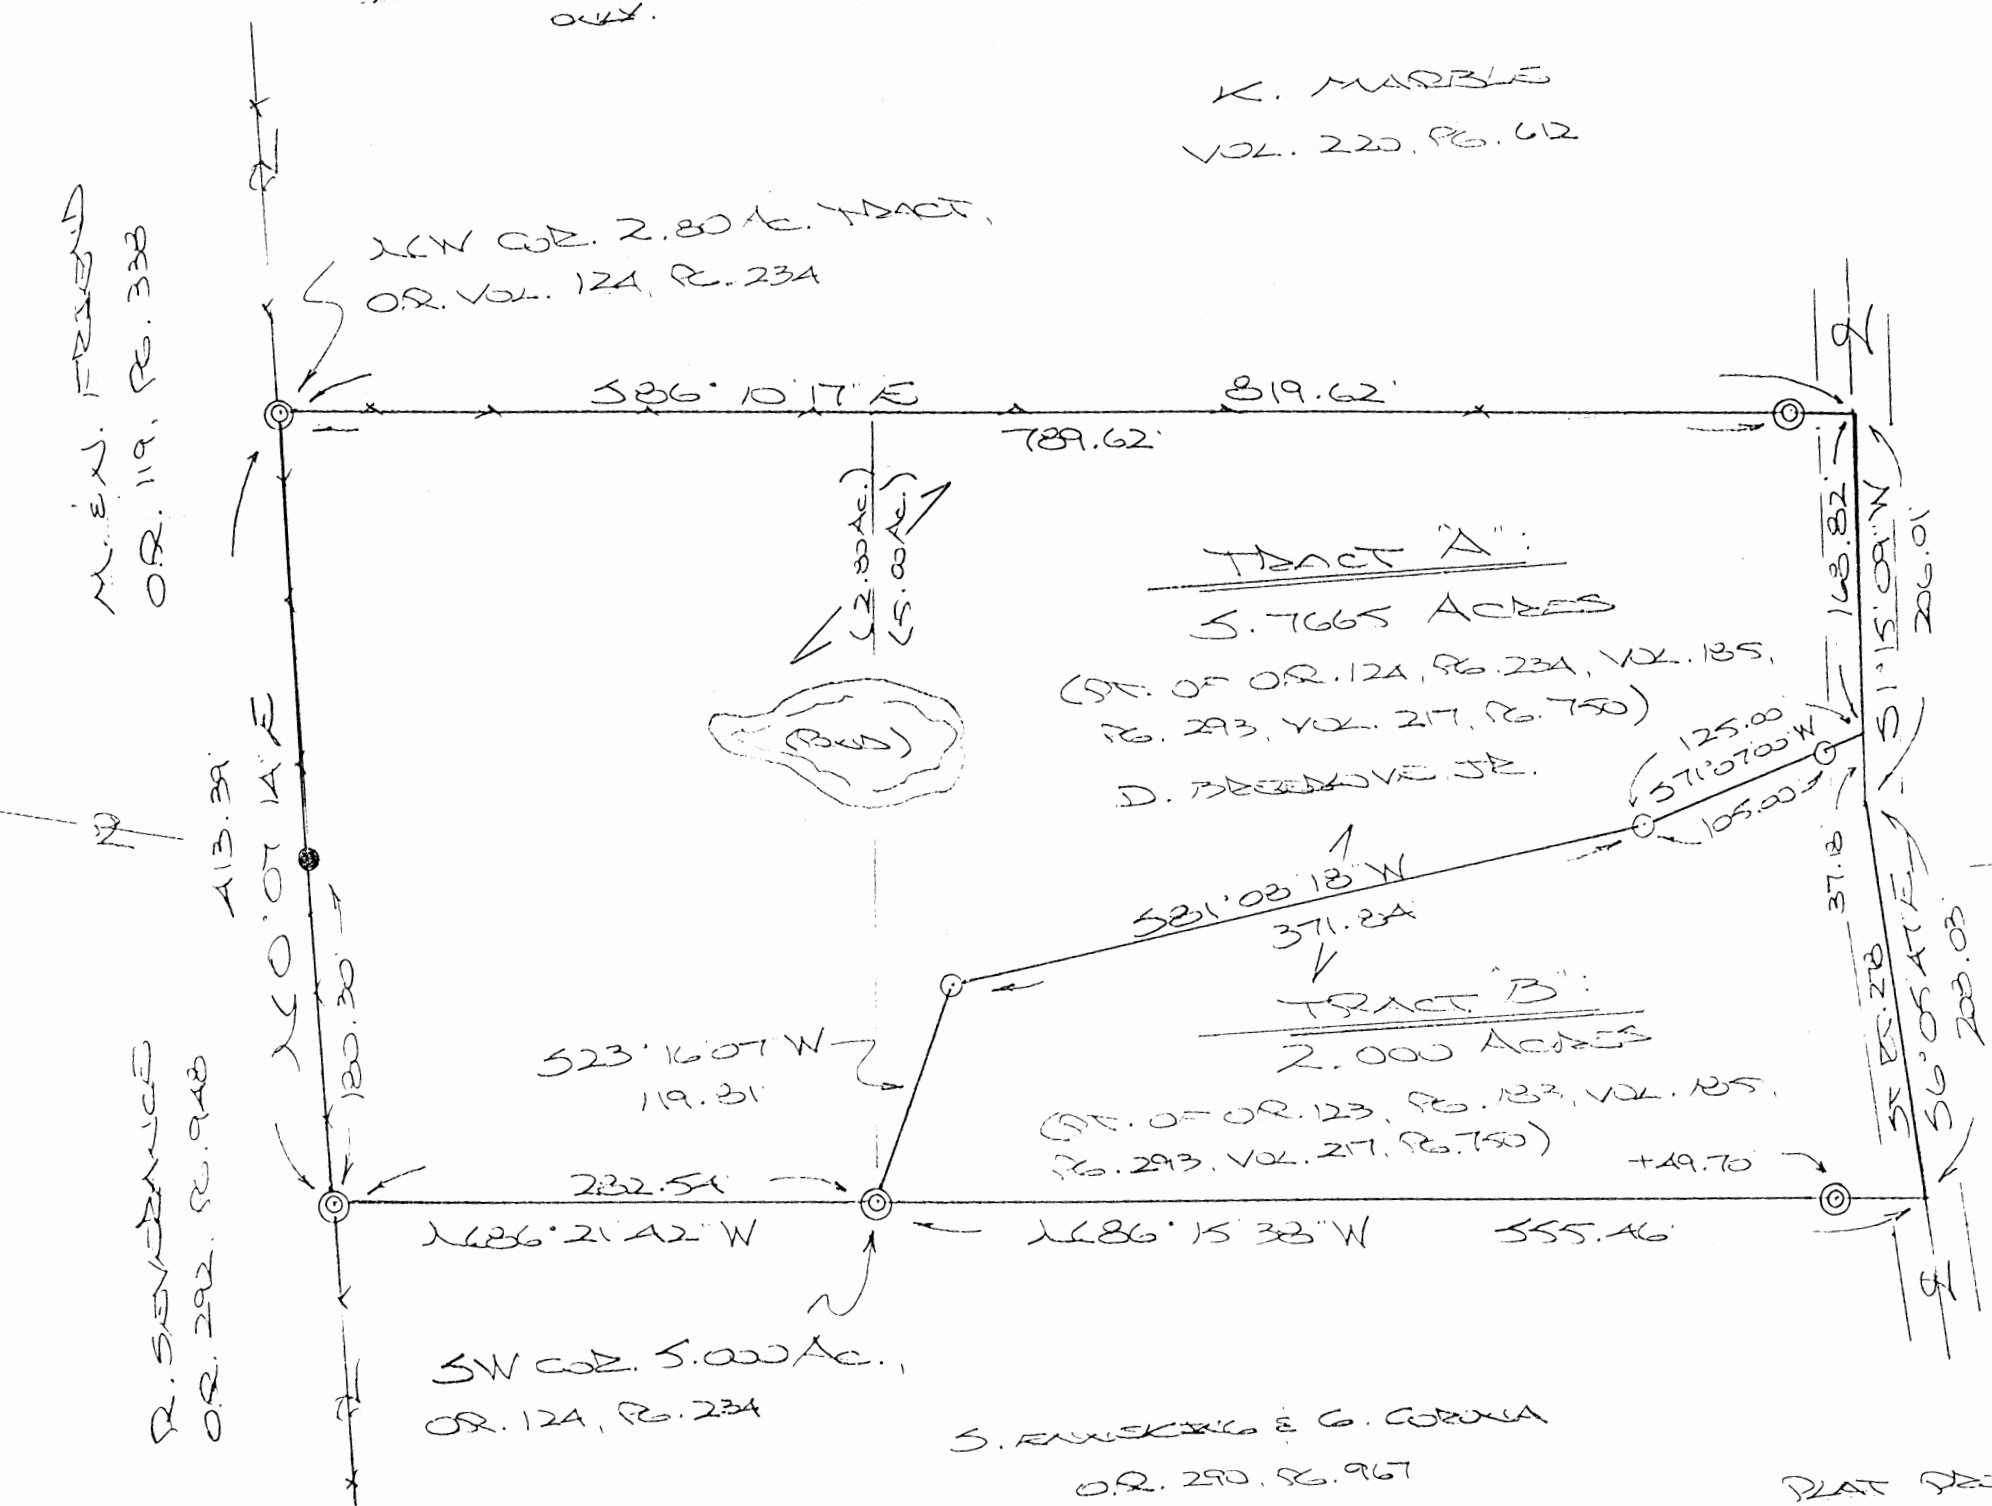 ONLY.
K. MARBLE
VOL. 220, PG. 612
NW COR. 2.80 AC. TRACT,
O.R. VOL. 124, PG. 234
M. & N. FRIEND
O.R. 119, PG. 338
S86° 10' 17" E 819.62'
789.62'
(2.80 AC.)
(5.00 AC.)
TRACT "A":
5.7665 ACRES
(PT. OF O.R. 124, PG. 234, VOL. 185,
PG. 293, VOL. 217, PG. 750)
D. JR.
(POND)
168.82'
S1° 15' 09" W
206.01'
125.00
S71° 07' 00" W
105.00
37.18
N0° 07' 14" E
413.39'
180.30'
S81° 08' 18" W
371.84'
TRACT "B":
2.000 ACRES
(PT. OF O.R. 123, PG. VOL. 185,
PG. 293, VOL. 217, PG. 750)
S23° 16' 07" W
119.81'
S6° 05' 47" E
203.03'
+49.70'
232.54'
N86° 21' 42" W
N86° 15' 38" W 555.46'
R. SEVERANCE
O.R. 292, PG. 948
SW COR. 5.000 AC.,
O.R. 124, PG. 234
S. & G. CORONA
O.R. 290, PG. 967
PLAT